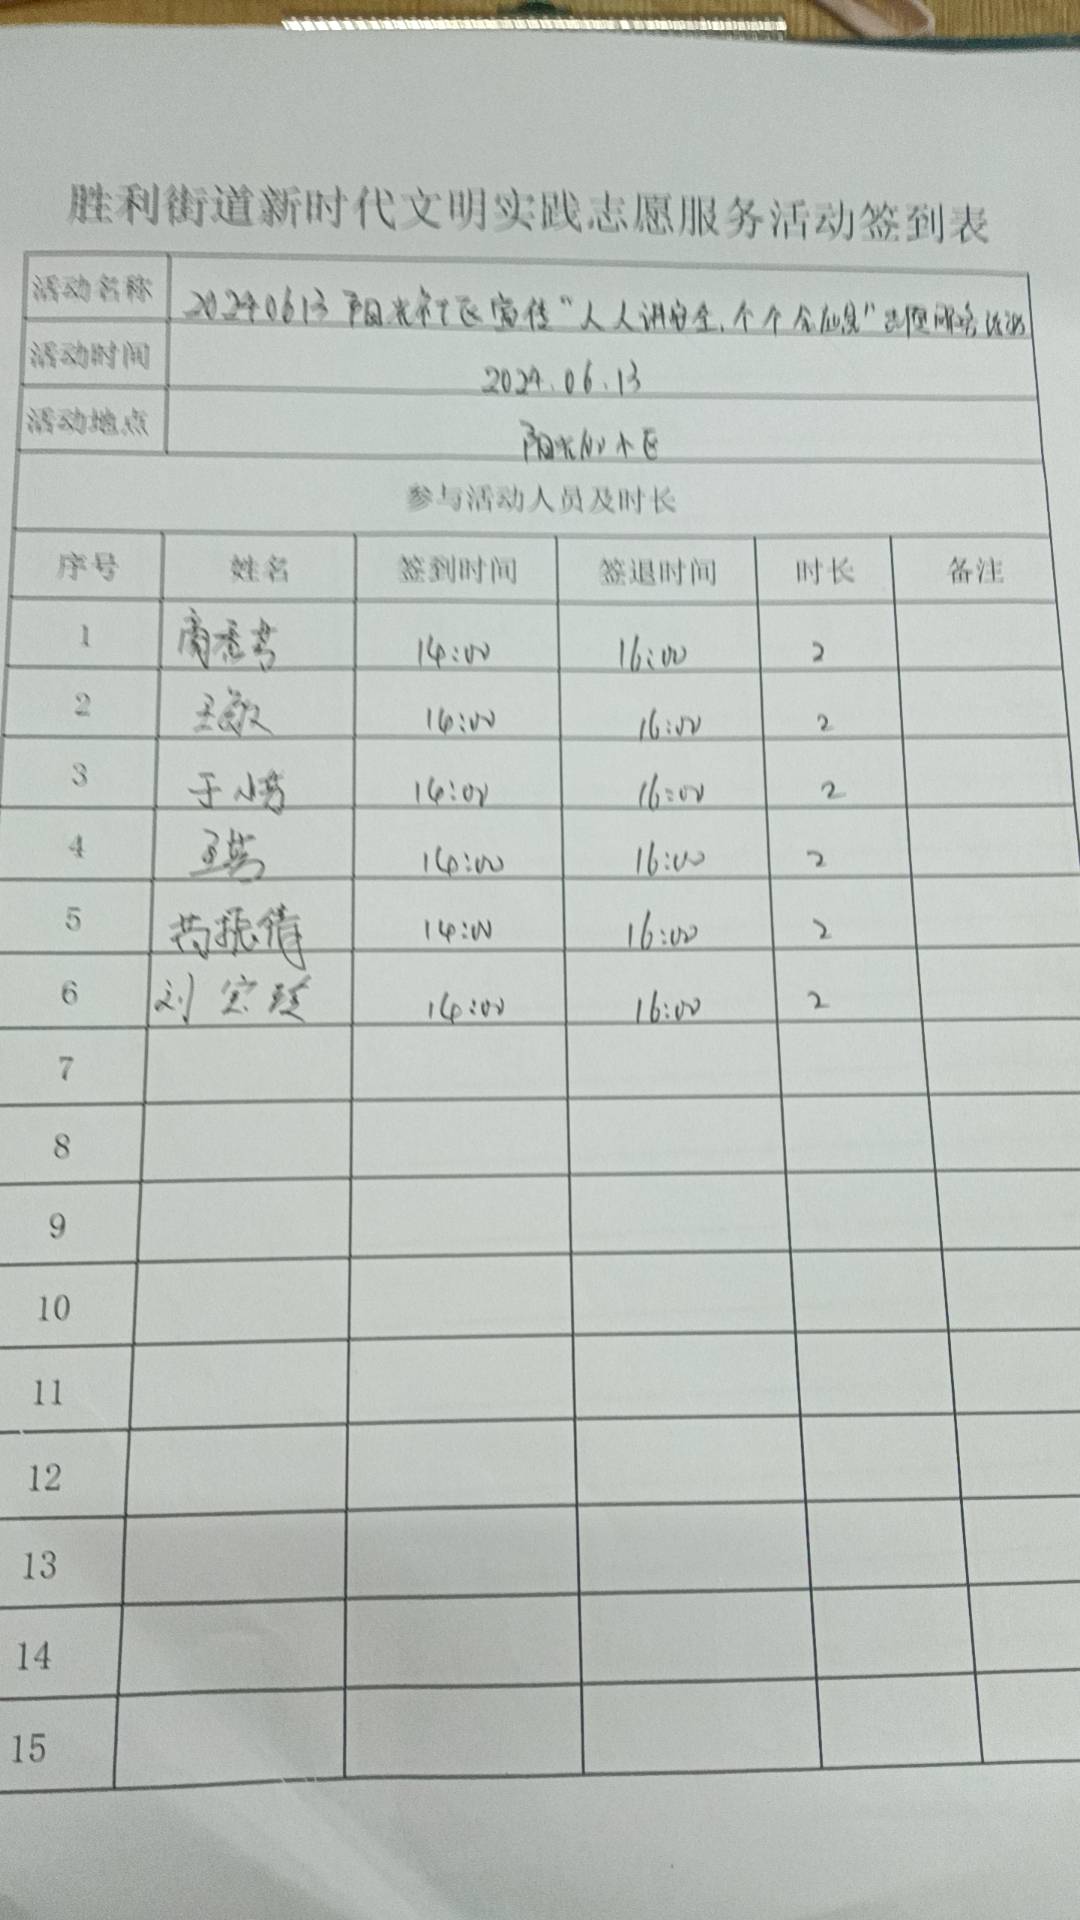 胜利街道新时代文明实践志愿服务活动签到表
活动名称 20240613 阳光社区宣传“人人讲安全,个个会应急”志愿服务活动
活动时间 2024.06.13
活动地点 阳光 小区
参与活动人员及时长
序号 姓名 签到时间 签退时间 时长 备注
1 14:00 16:00 2
2 王敏 14:00 16:00 2
3 于小 14:00 16:00 2
4 14:00 16:00 2
5 振倩 14:00 16:00 2
6 刘宝 14:00 16:00 2
7
8
9
10
11
12
13
14
15